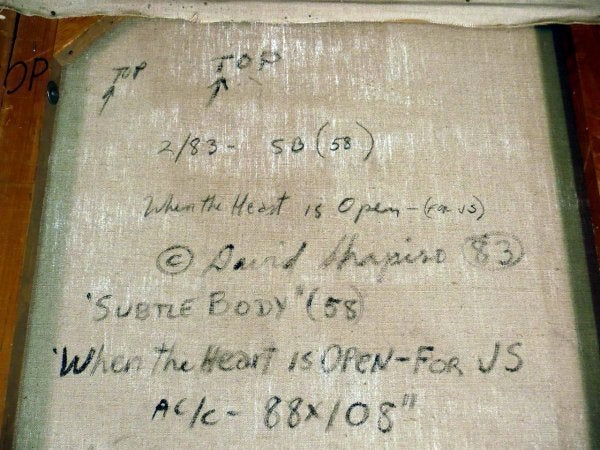 TOP TOP
OP
2/83 - SB (58)
When the Heart is Open - (For JS)
© David Shapiro 83
"SUBTLE BODY" (58)
"When the Heart is OPEN - FOR JS
AC/C - 88x108"